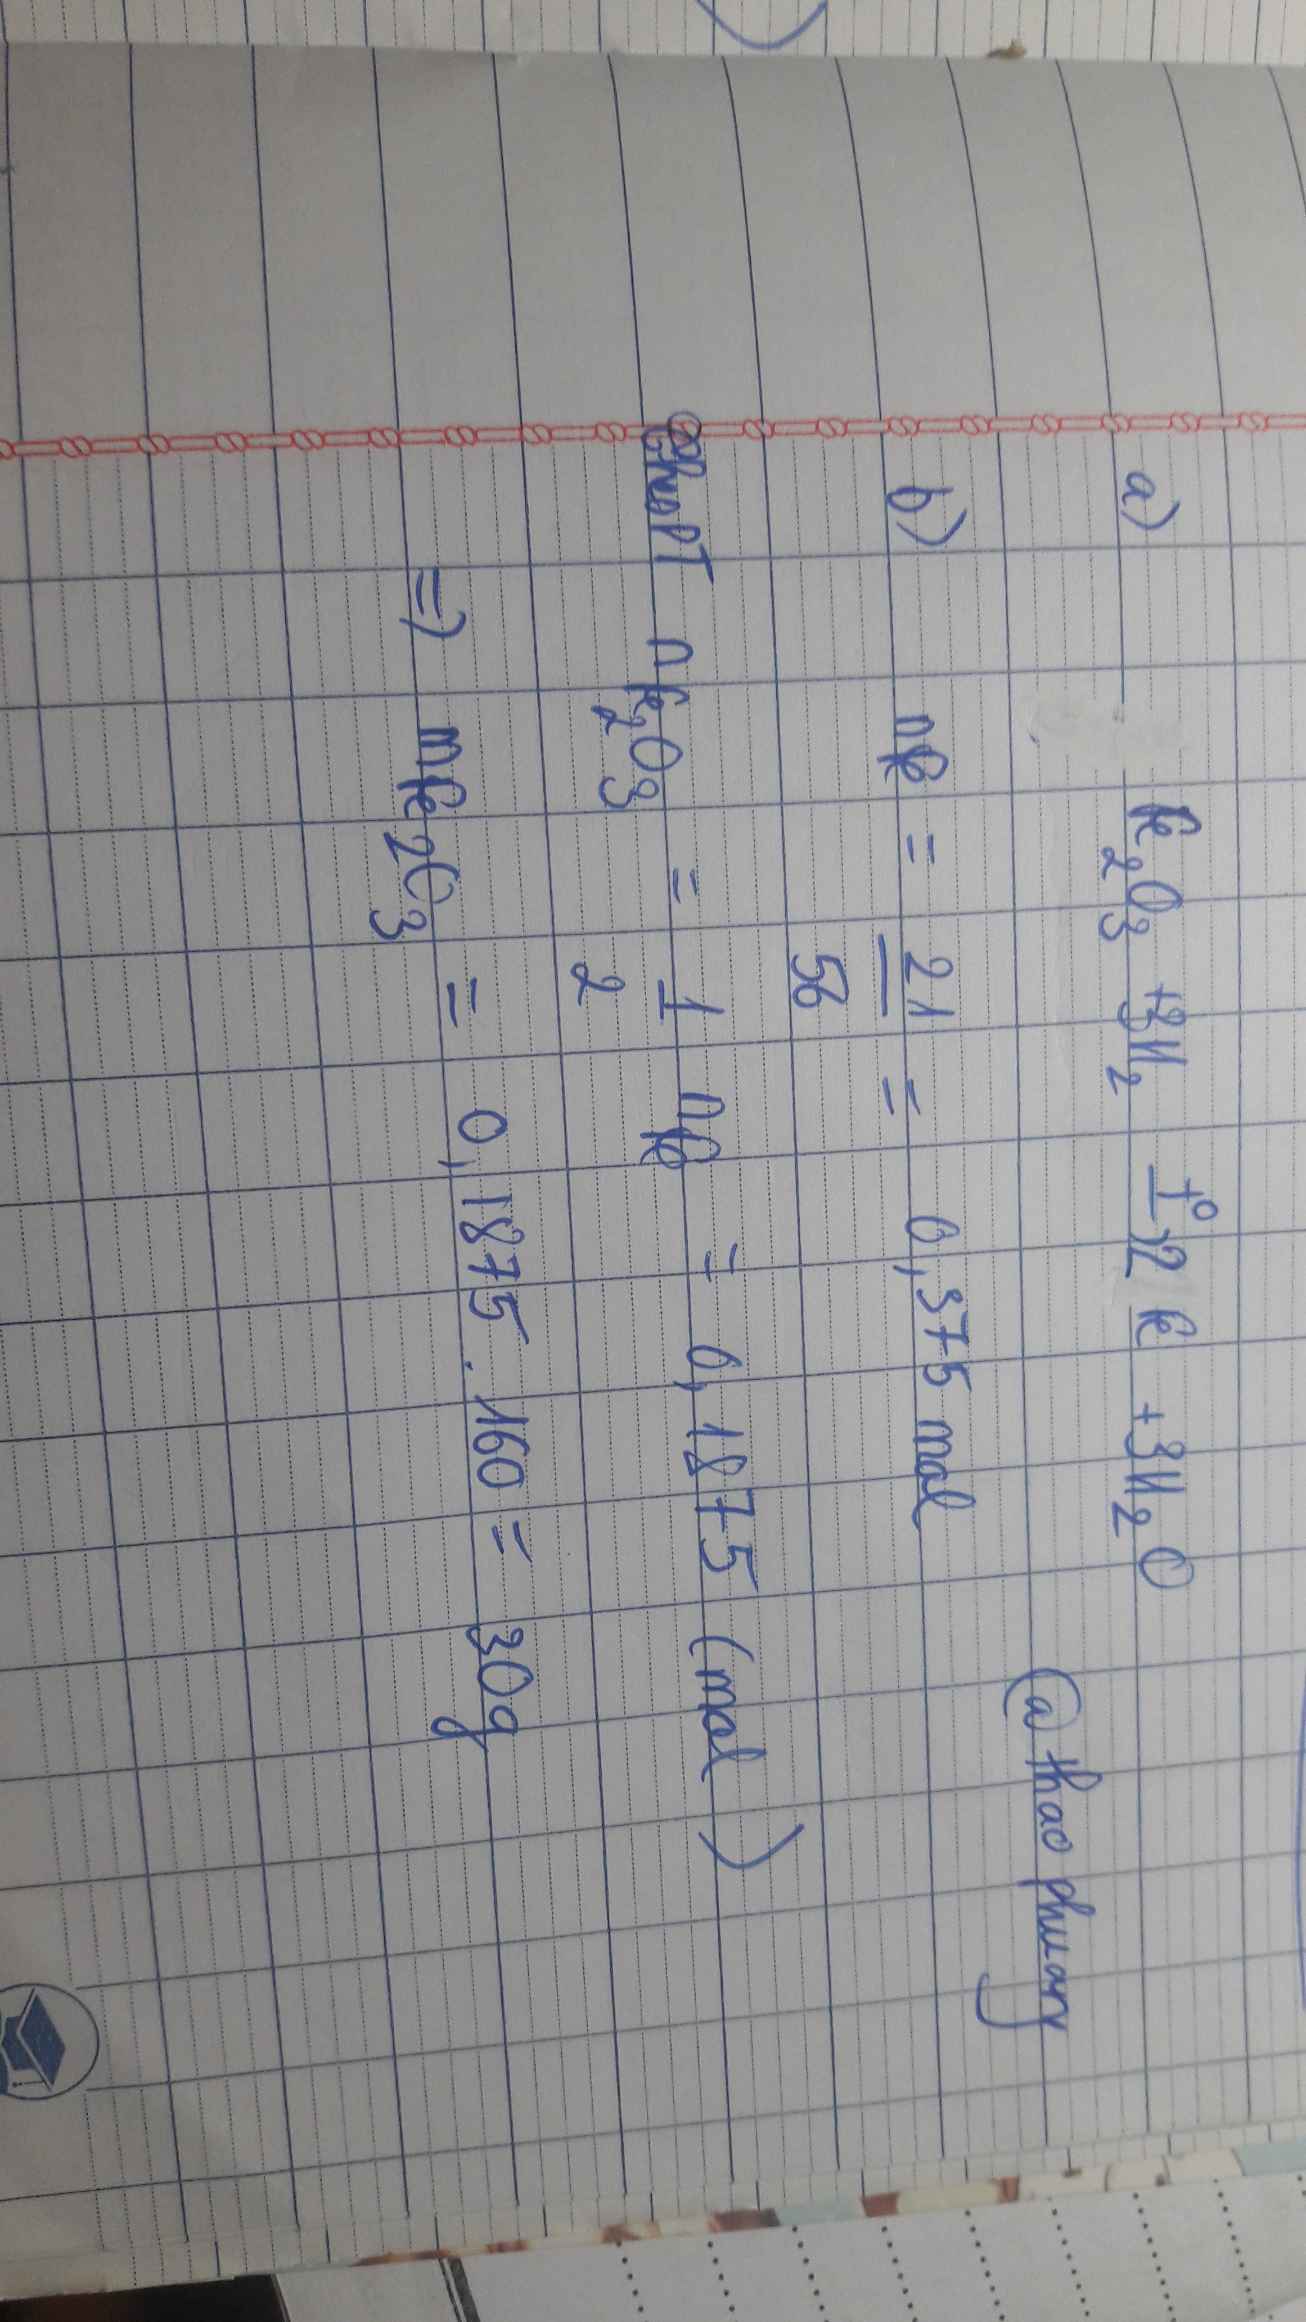 a) Fe2O3 + 3H2 t° → 2 Fe + 3H2O
@ thao phuong
b) nFe = 21/56 = 0,375 mol
Theo PT nFe2O3 = 1/2 nFe = 0,1875 (mol)
=> mFe2O3 = 0,1875 . 160 = 30g